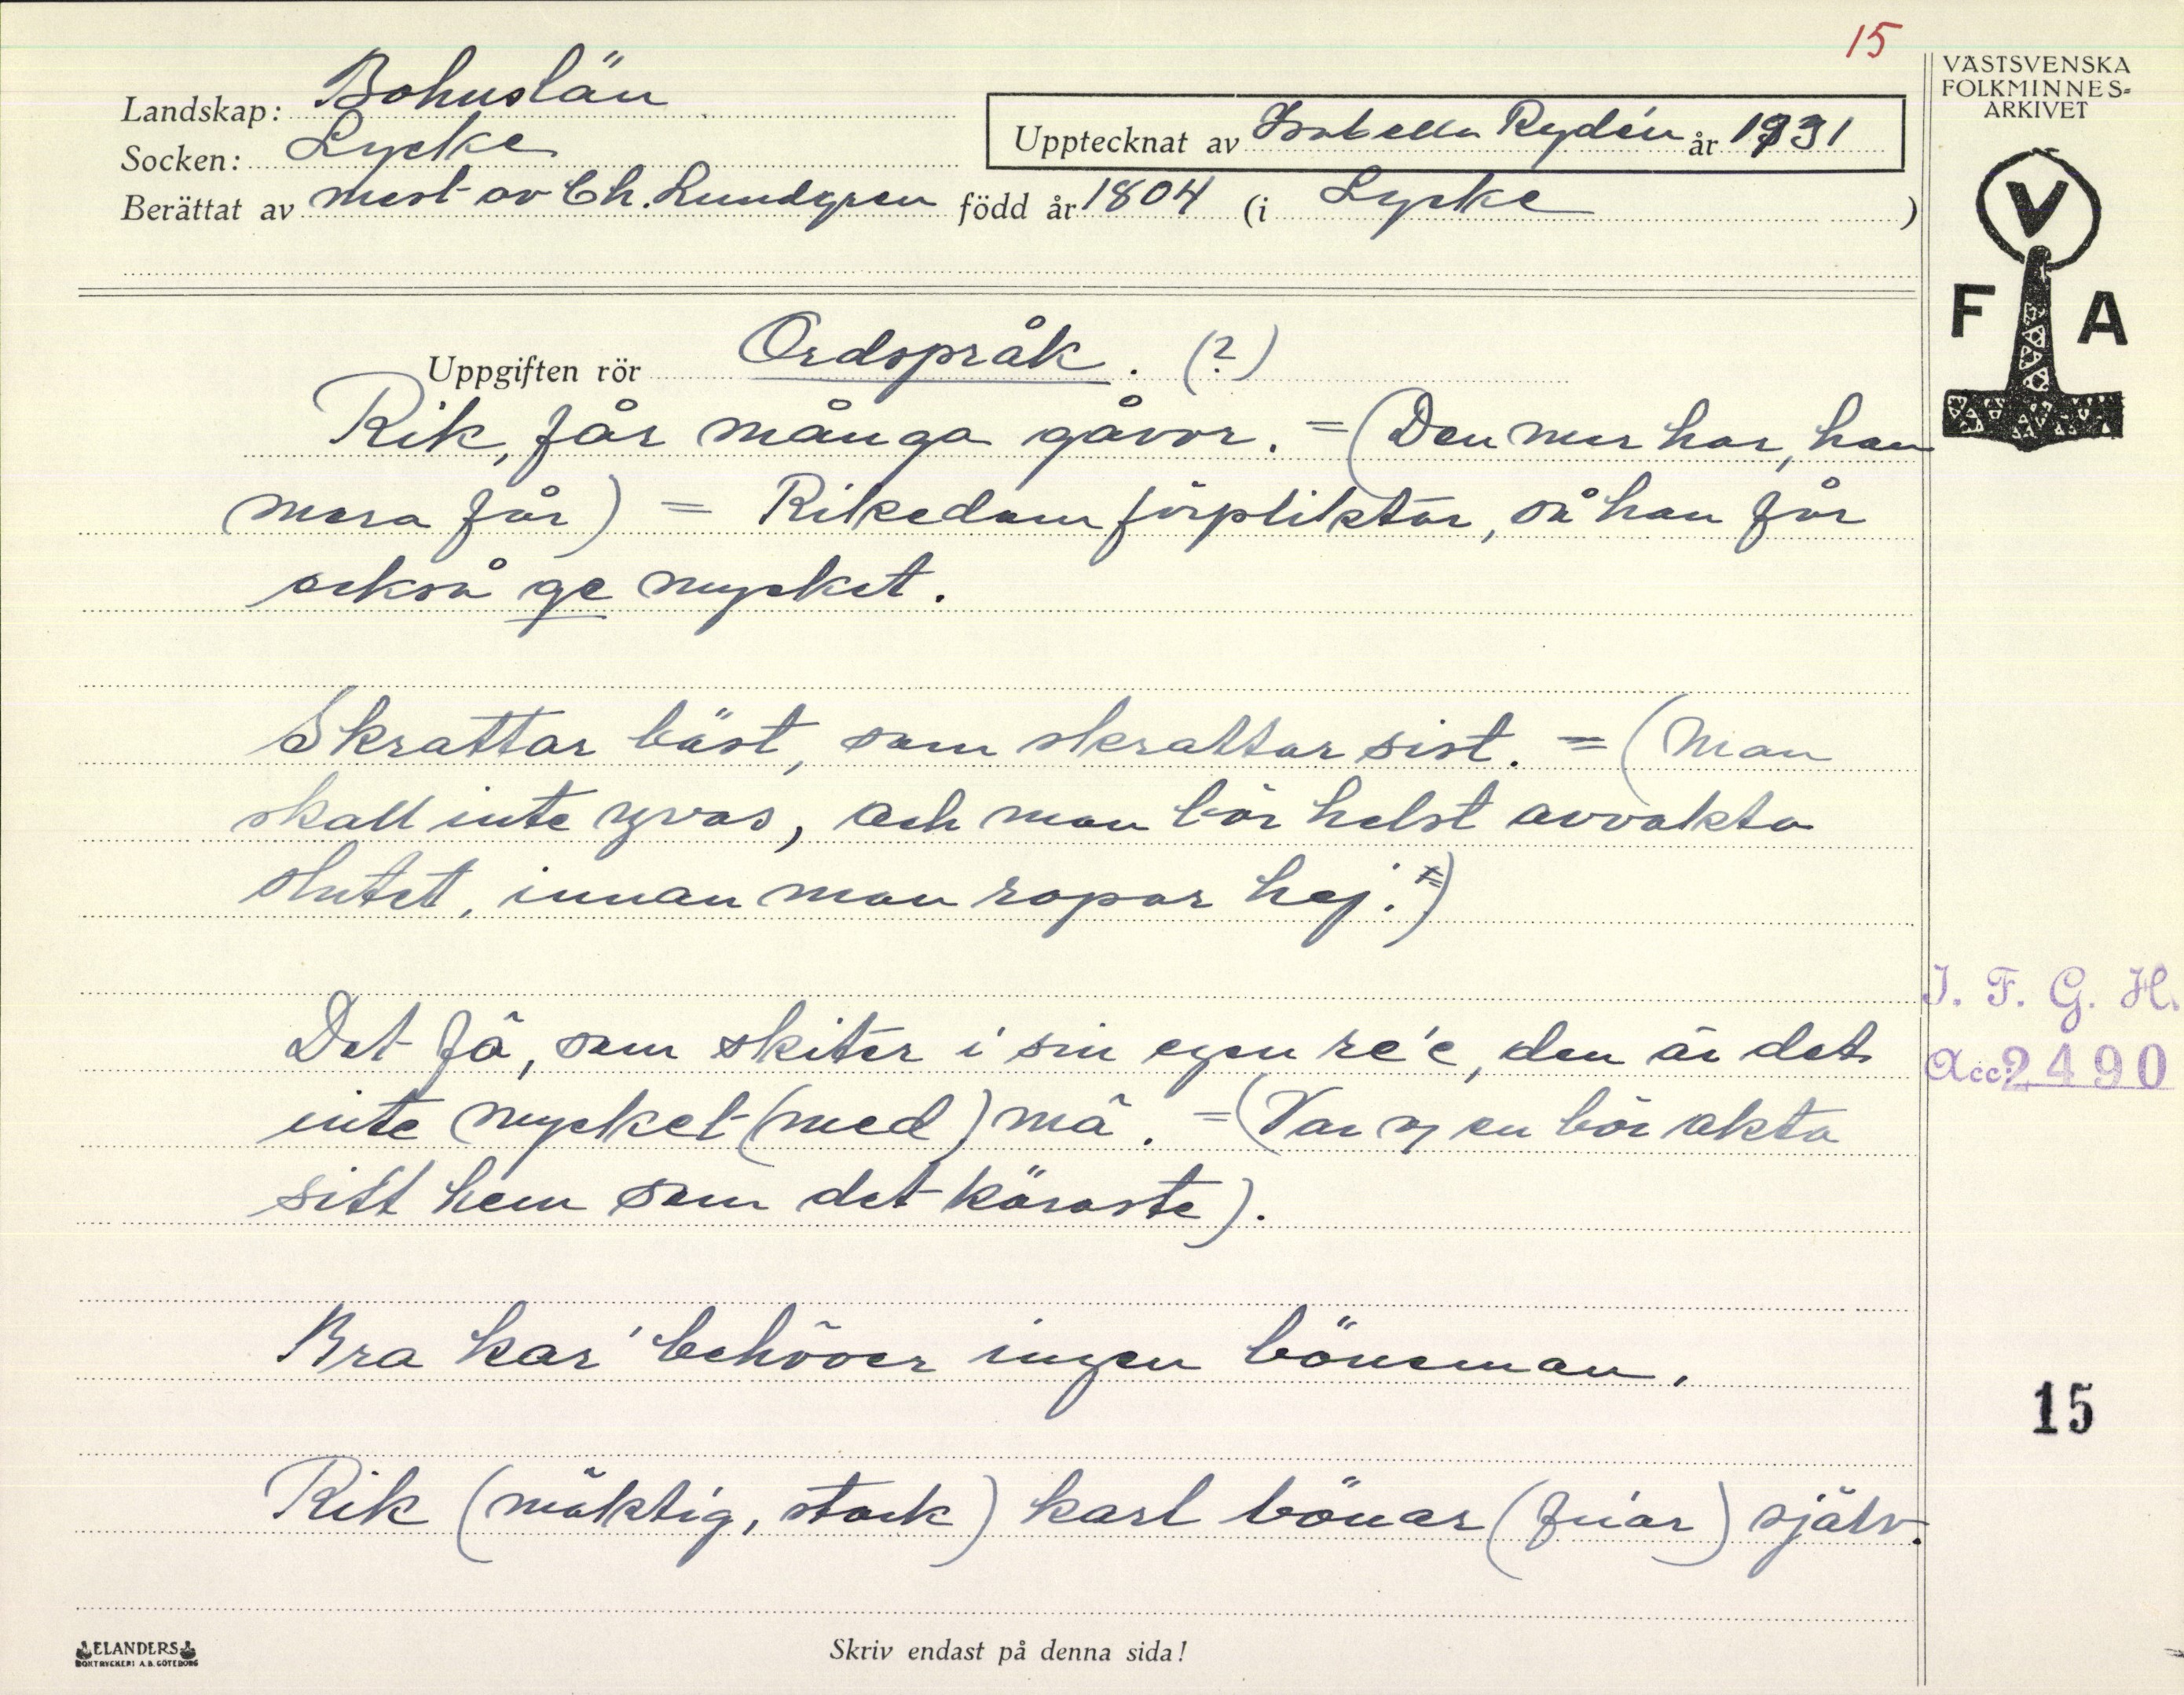 15
VÄSTSVENSKA
FOLKMINNES-
ARKIVET
Landskap: Bohuslän
Upptecknat av Isabella Rydén år 1931
Socken: Lycke
Berättat av mest av Ch. Lundgren född år 1804 (i Lycke )
V
F A
Uppgiften rör Ordspråk. (?)
Rik, får många gåvor. = (Den mer har, han
mera får) = Rikedom förpliktar, så han får
också ge mycket.
Skrattar bäst, som skrattar sist. = (Man
skall inte yvas, och man bör helst avvakta
slutet, innan man ropar hej.)
I. F. G. H.
Det fä, som skiter i sin egen re'e, den är det
Acc. 2490
inte mycket (med) mä. = (Var o en bör akta
sitt hem som det käraste).
Bra kar' behöver ingen böneman.
15
Rik (mäktig, stark) karl bönar (friar) själv.
ELANDERS
BOKTRYCKERI A.B. GÖTEBORG
Skriv endast på denna sida!